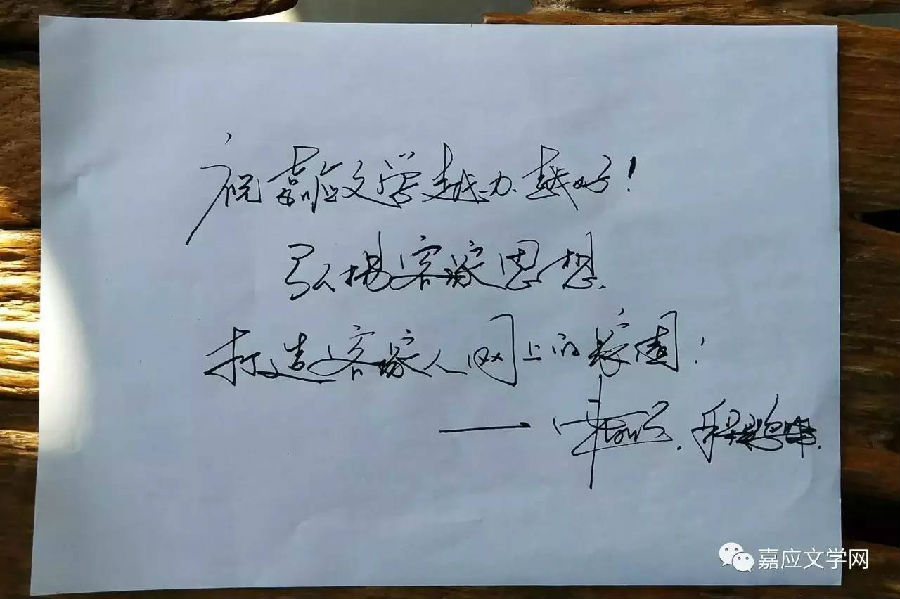 祝嘉应文学越办越好!
弘扬客家思想
打造客家人网上的家园!
——
嘉应文学网